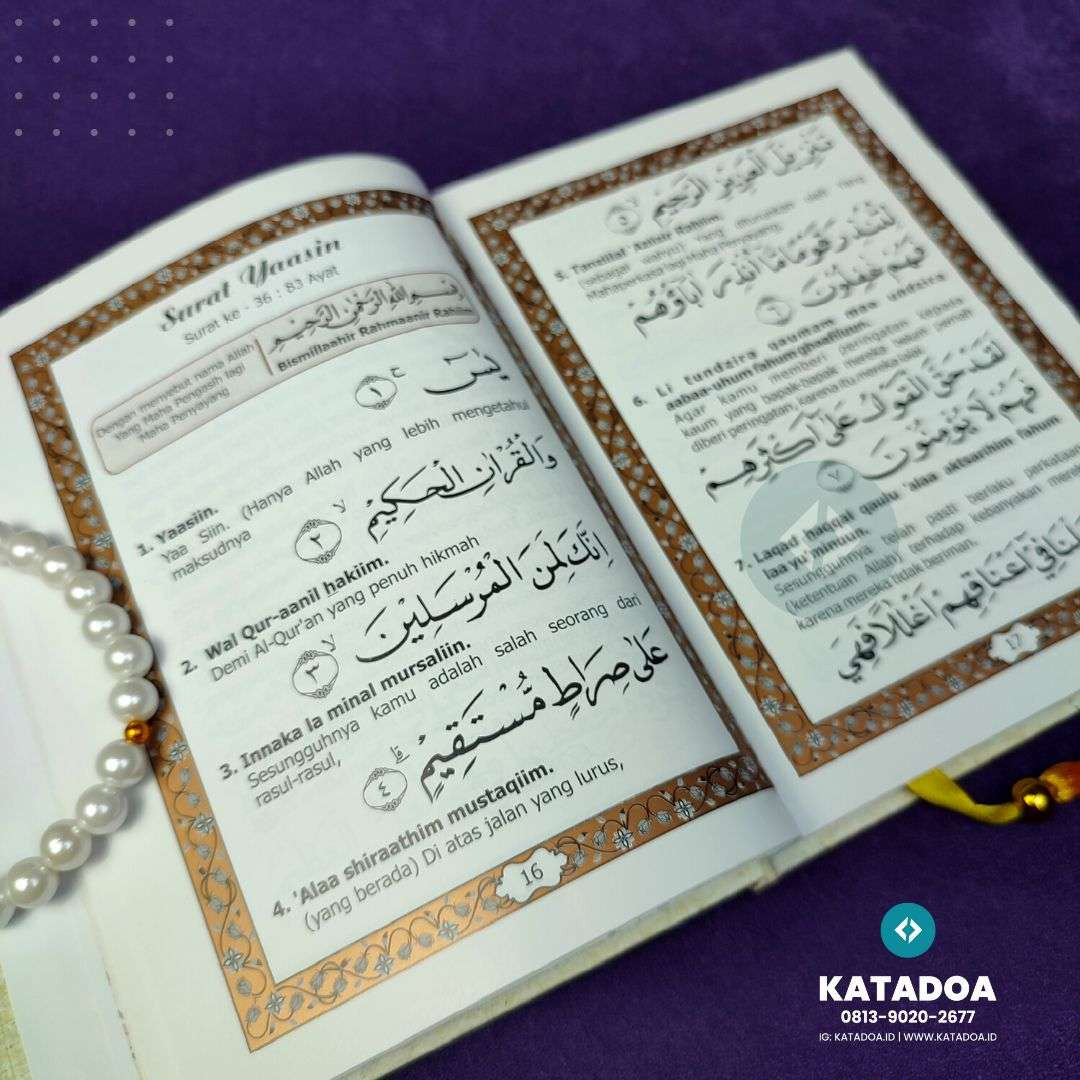 Surat Yaasin
Surat ke - 36 : 83 Ayat
Dengan menyebut nama Allah
Yang Maha Pengasih lagi
Maha Penyayang
بِسْمِ اللّٰهِ الرَّحْمٰنِ الرَّحِيْمِ
Bismillaahir Rahmaanir Rahiim
يٰسۤ ۚ ١
1. Yaasiin.
Yaa Siin. (Hanya Allah yang lebih mengetahui
maksudnya
وَالْقُرْاٰنِ الْحَكِيْمِ ۙ ٢
2. Wal Qur-aanil hakiim.
Demi Al-Qur'an yang penuh hikmah
اِنَّكَ لَمِنَ الْمُرْسَلِيْنَ ۙ ٣
3. Innaka la minal mursaliin.
Sesungguhnya kamu adalah salah seorang dari
rasul-rasul,
عَلٰى صِرَاطٍ مُّسْتَقِيْمٍ ۗ ٤
4. 'Alaa shiraathim mustaqiim.
(yang berada) Di atas jalan yang lurus,
16
تَنْزِيْلَ الْعَزِيْزِ الرَّحِيْمِ ۙ ٥
5. Tanziilal 'Aziizir Rahiim.
(sebagai wahyu) Yang diturunkan oleh Yang
Mahaperkasa lagi Maha Penyayang.
لِتُنْذِرَ قَوْمًا مَّآ اُنْذِرَ اٰبَاۤؤُهُمْ
فَهُمْ غٰفِلُوْنَ ٦
6. Li tundzira qaumam maa undzira
aabaa-uhum fahum ghaafiluun.
Agar kamu memberi peringatan kepada
kaum yang bapak-bapak mereka belum pernah
diberi peringatan, karena itu mereka lalai.
لَقَدْ حَقَّ الْقَوْلُ عَلٰٓى اَكْثَرِهِمْ
فَهُمْ لَا يُؤْمِنُوْنَ ٧
7. Laqad haqqal qaulu alaa aktsarihim fahum
laa yu'minuun.
Sesungguhnya telah pasti berlaku perkataan
(ketentuan Allah) terhadap kebanyakan mereka
karena mereka tidak beriman.
اَعْنَاقِهِمْ اَغْلٰلًا فَهِيَ
17
KATADOA
0813-9020-2677
IG: KATADOA.ID | WWW.KATADOA.ID